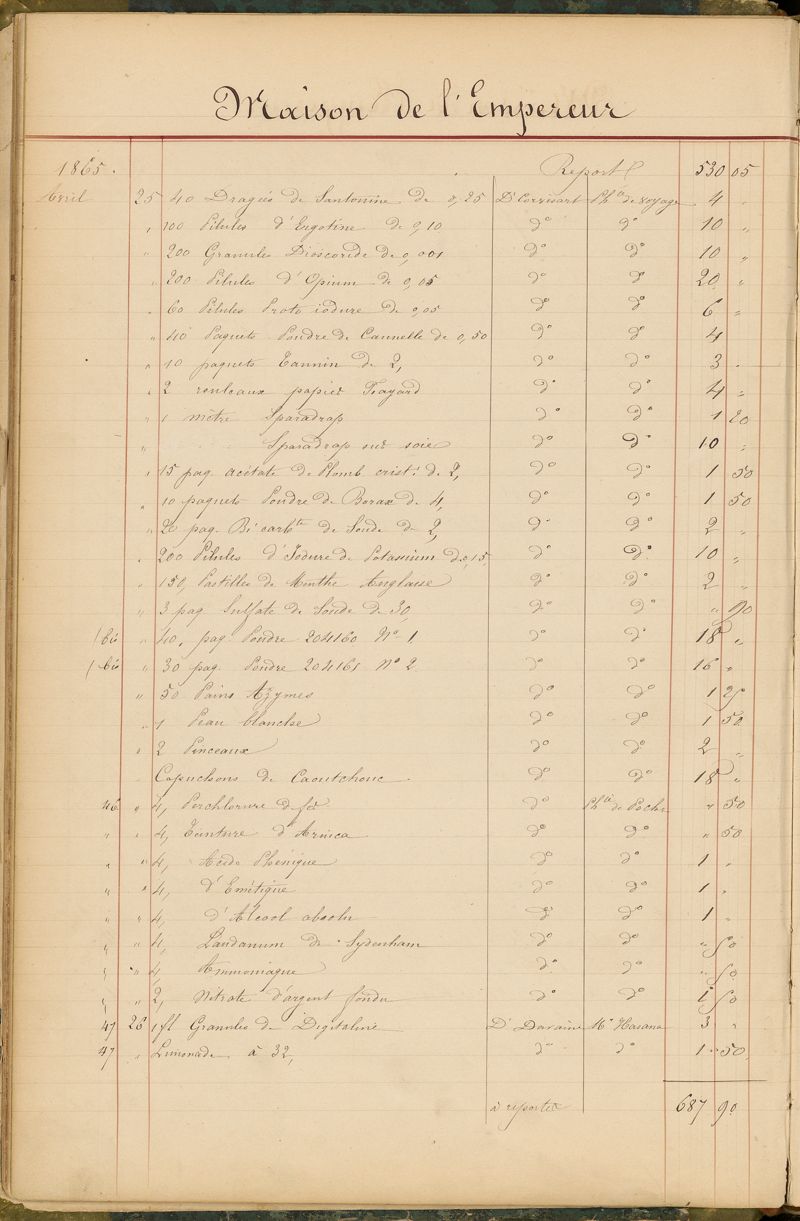 Maison de l'Empereur
1865. Report 530 05
Avril 25 40 Dragées de Santonine de 0,25 Dr Corvisart Phie de voyage 4 "
" 100 Pilules d'Ergotine de 0,10 do do 10 "
" 200 Granules Dioscoride de 0,001 do do 10 "
" 200 Pilules d'Opium de 0,05 do do 20 "
" 60 Pilules Proto iodure de 0,05 do do 6 "
" 40 Paquets Poudre de Cannelle de 0,50 do do 4
" 10 paquets Tannin de 2, do do 3 "
" 2 rouleaux papier Fayard do do 4 "
" 1 mètre Sparadrap do do 1 20
" Sparadrap sur soie do do 10 "
" 15 paq acétate de Plomb crist. de 2, do do 1 50
" 10 paquets Poudre de Borax de 4, do do 1 50
" 20 paq. Bi carbte de Soude de 2, do do 2 "
" 200 Pilules d'Iodure de Potassium de 0,15 do do 10 "
" 150 Pastilles de Menthe Anglaise do do 2 "
" 3 paq Sulfate de Soude de 30, do do " 90
1 bis " 40, paq. Poudre 204160 No 1 do do 18 "
1 bis " 30 paq. Poudre 204161 No 2 do do 16 "
" 50 Pains Azymes do do 1 25
" 1 Peau blanche do do 1 50
" 2 Pinceaux do do 2 "
Capuchons de Caoutchouc do do 18 "
46 " 4, Perchlorure de fer do Phie de Poche " 50
" " 4, Teinture d'Arnica do do " 50
" " 4, Acide Phénique do do 1 "
" " 4, d'Emétique do do 1 "
" " 4, d'Alcool absolu do do 1 "
" " 4, Laudanum de Sydenham do do " 50
" " 4, Ammoniaque do do " 50
" " 2, Nitrate d'argent fondu do do 1 50
47 26 1 fl Granules de Digitaline Dr Davaine Mr Hasana 3 "
47 " Limonade à 32, do do 1 50
à reporter 687 90